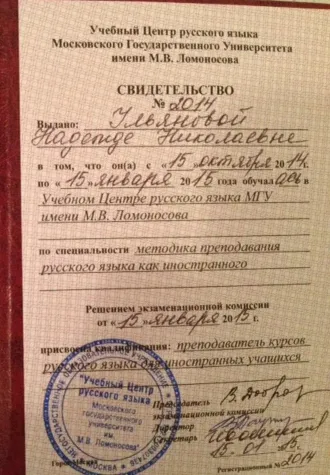 Учебный Центр русского языка
Московского Государственного Университета
имени М.В. Ломоносова
СВИДЕТЕЛЬСТВО
№ 2014
Выдано: Ульяновой
Надежде Николаевне
в том, что он(а) с «15 октября 2014г.
по «15» января 2015 года обучалась в
Учебном Центре русского языка МГУ
имени М.В. Ломоносова
по специальности методика преподавания
русского языка как иностранного
Решением экзаменационной комиссии
от «15» января 2015 г.
присвоена квалификация: преподаватель курсов
русского языка для иностранных учащихся
"Учебный Центр
русского языка
Московского
государственного
университета
им
М.В. Ломоносова"
МОСКВА
Председатель
экзаменационной комиссии
Директор
Секретарь
15.01.15.
Город Москва
Регистрационный №2014